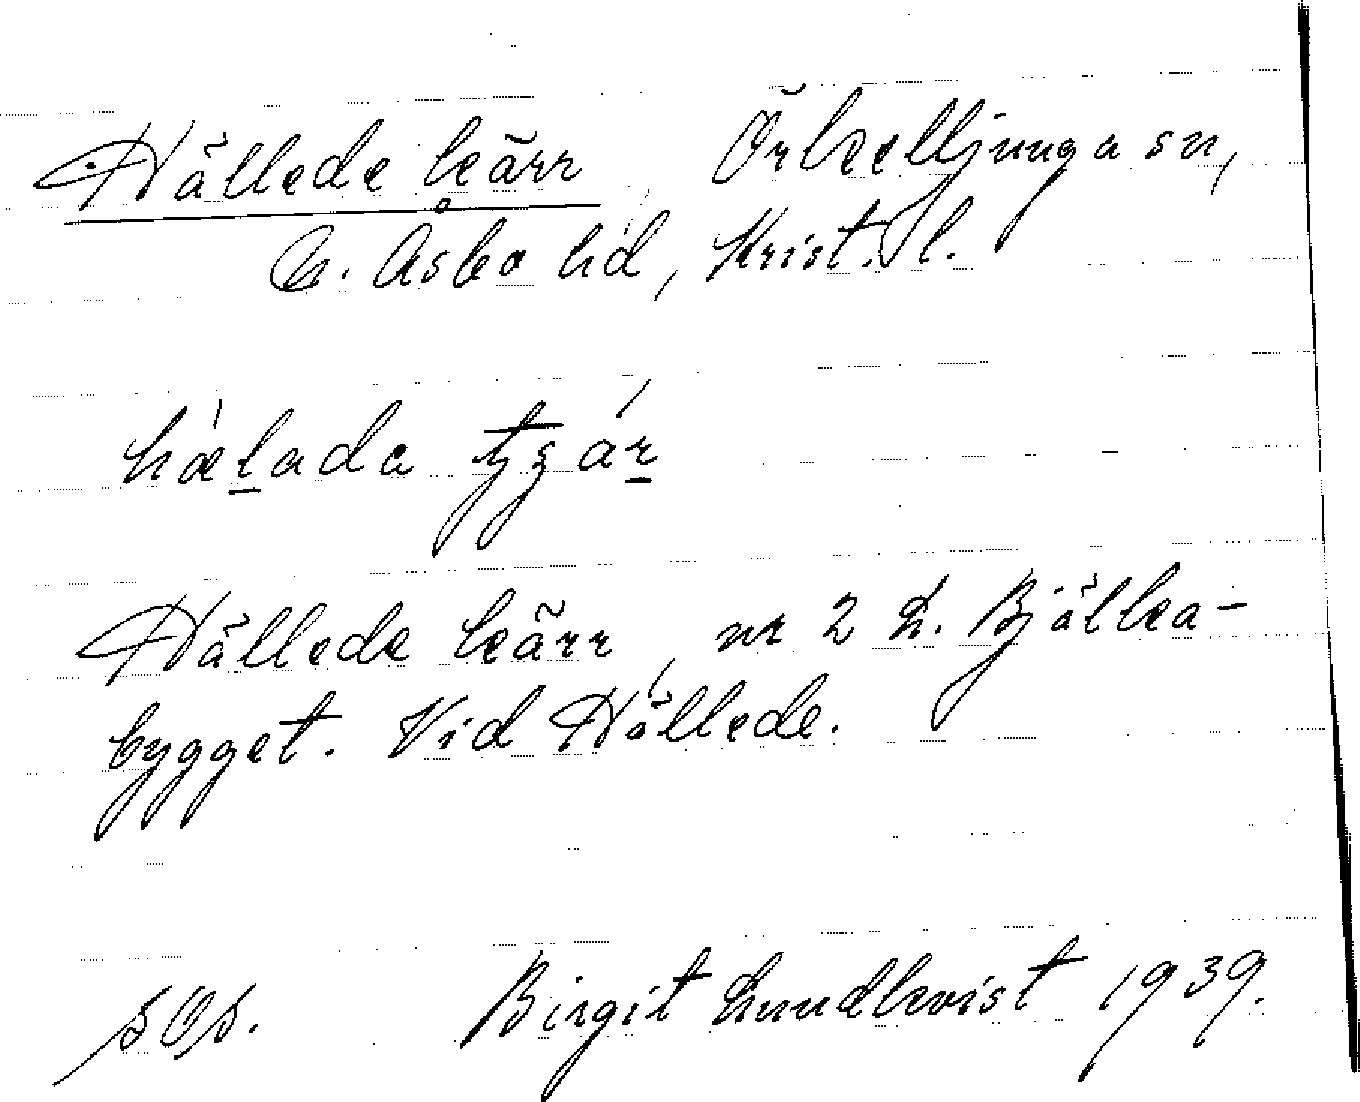 Hällede kärr, Örkelljunga sn,
N. Åsbo hd, Krist. l.
hælada tʂár
Hällede kärr, nr 2 L. Bjälka-
bygget. Vid Hällede.
Birgit Lundkvist 1939.